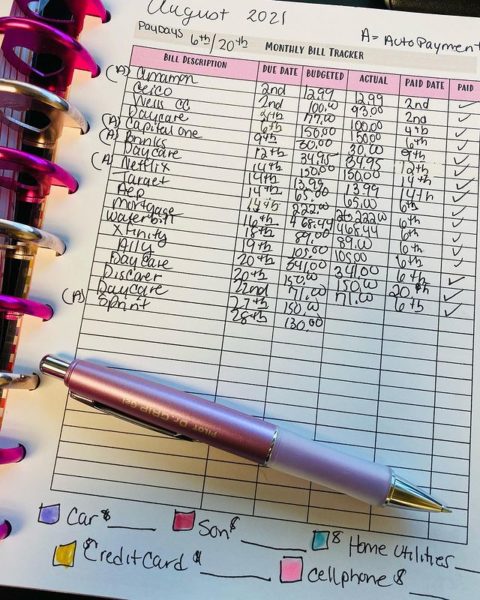 August 2021
Paydays 6th/20th A= AutoPayment
MONTHLY BILL TRACKER
BILL DESCRIPTION DUE DATE BUDGETED ACTUAL PAID DATE PAID
(A) 2nd 12.99 12.99 2nd ✓
Geico 2nd 100.00 93.00 2nd ✓
Wells CC 77.00 100.00 4th ✓
Daycare 6th 150.00 150.00 6th ✓
(A) Capital One 9th 30.00 30.00 9th ✓
(A) Brinks 12th 34.95 34.95 12th ✓
Daycare 150.00 150.00 ✓
(A) Netflix 14th 13.99 13.99 14th ✓
Target 14th 65.00 65.00 6th ✓
Aep 14th 222.00 222.00 6th ✓
Mortgage 16th 468.44 468.44 6th ✓
Waterbill 18th 89.00 89.00 6th ✓
Xfinity 19th 105.00 105.00 6th ✓
Ally 20th 341.00 341.00 6th ✓
Daycare 20th 150.00 150.00 20th ✓
Discover 22nd 71.00 71.00 6th ✓
Daycare 27th 150.00
(A) Sprint 28th 130.00
Car $____ Son $____ $ Home Utilities __
$ Credit Card $____ Cellphone $____